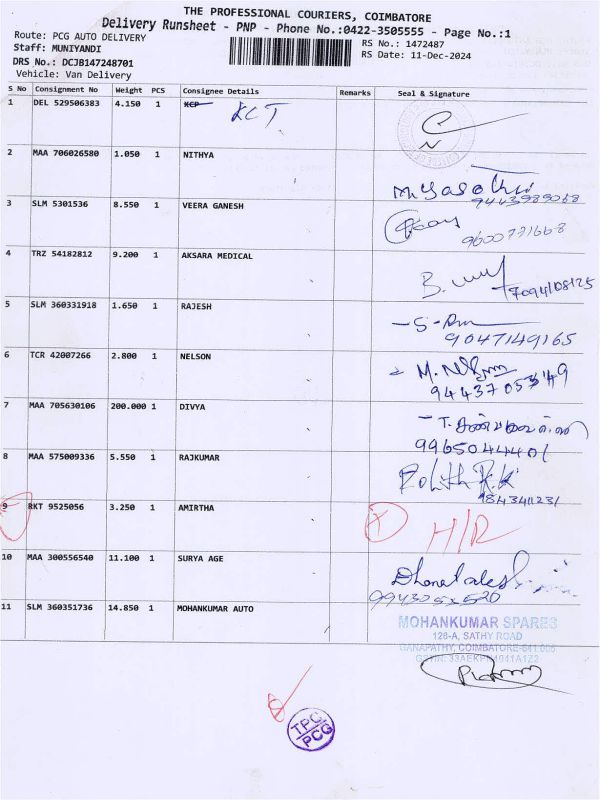 THE PROFESSIONAL COURIERS, COIMBATORE
Delivery Runsheet - PNP - Phone No.:0422-3505555 - Page No.:1
Route: PCG AUTO DELIVERY
Staff: MUNIYANDI
DRS No.: DCJB147248701
Vehicle: Van Delivery
RS No.: 1472487
RS Date: 11-Dec-2024
S No Consignment No Weight PCS Consignee Details Remarks Seal & Signature
1 DEL 529506383 4.150 1 KCP KCT
2 MAA 706026580 1.050 1 NITHYA
9443989068
3 SLM 5301536 8.550 1 VEERA GANESH
9600731668
4 TRZ 54182812 9.200 1 AKSARA MEDICAL
7094108125
5 SLM 360331918 1.650 1 RAJESH
9047149165
6 TCR 42007266 2.800 1 NELSON
7 MAA 705630106 200.000 1 DIVYA
9965044401
8 MAA 575009336 5.550 1 RAJKUMAR
9843411231
9 RKT 9525056 3.250 1 AMIRTHA H/R
10 MAA 300556540 11.100 1 SURYA AGE
11 SLM 360351736 14.850 1 MOHANKUMAR AUTO
MOHANKUMAR SPARES
126-A, SATHY ROAD
GANAPATHY, COIMBATORE-641 006
TPC
PCG